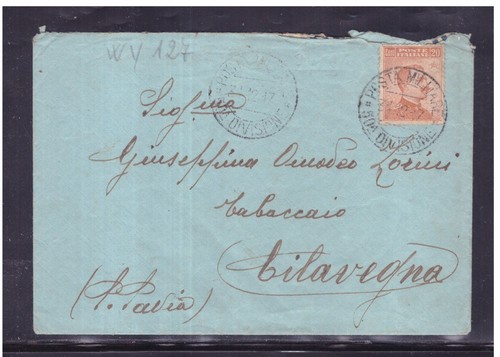 WY 127
POSTE ITALIANE
20
POSTA MILITARE
DIVISIONE
Sig.ina
Giuseppina Amodeo Lorini
Tabaccaio
Cilavegna
(P. Pavia)